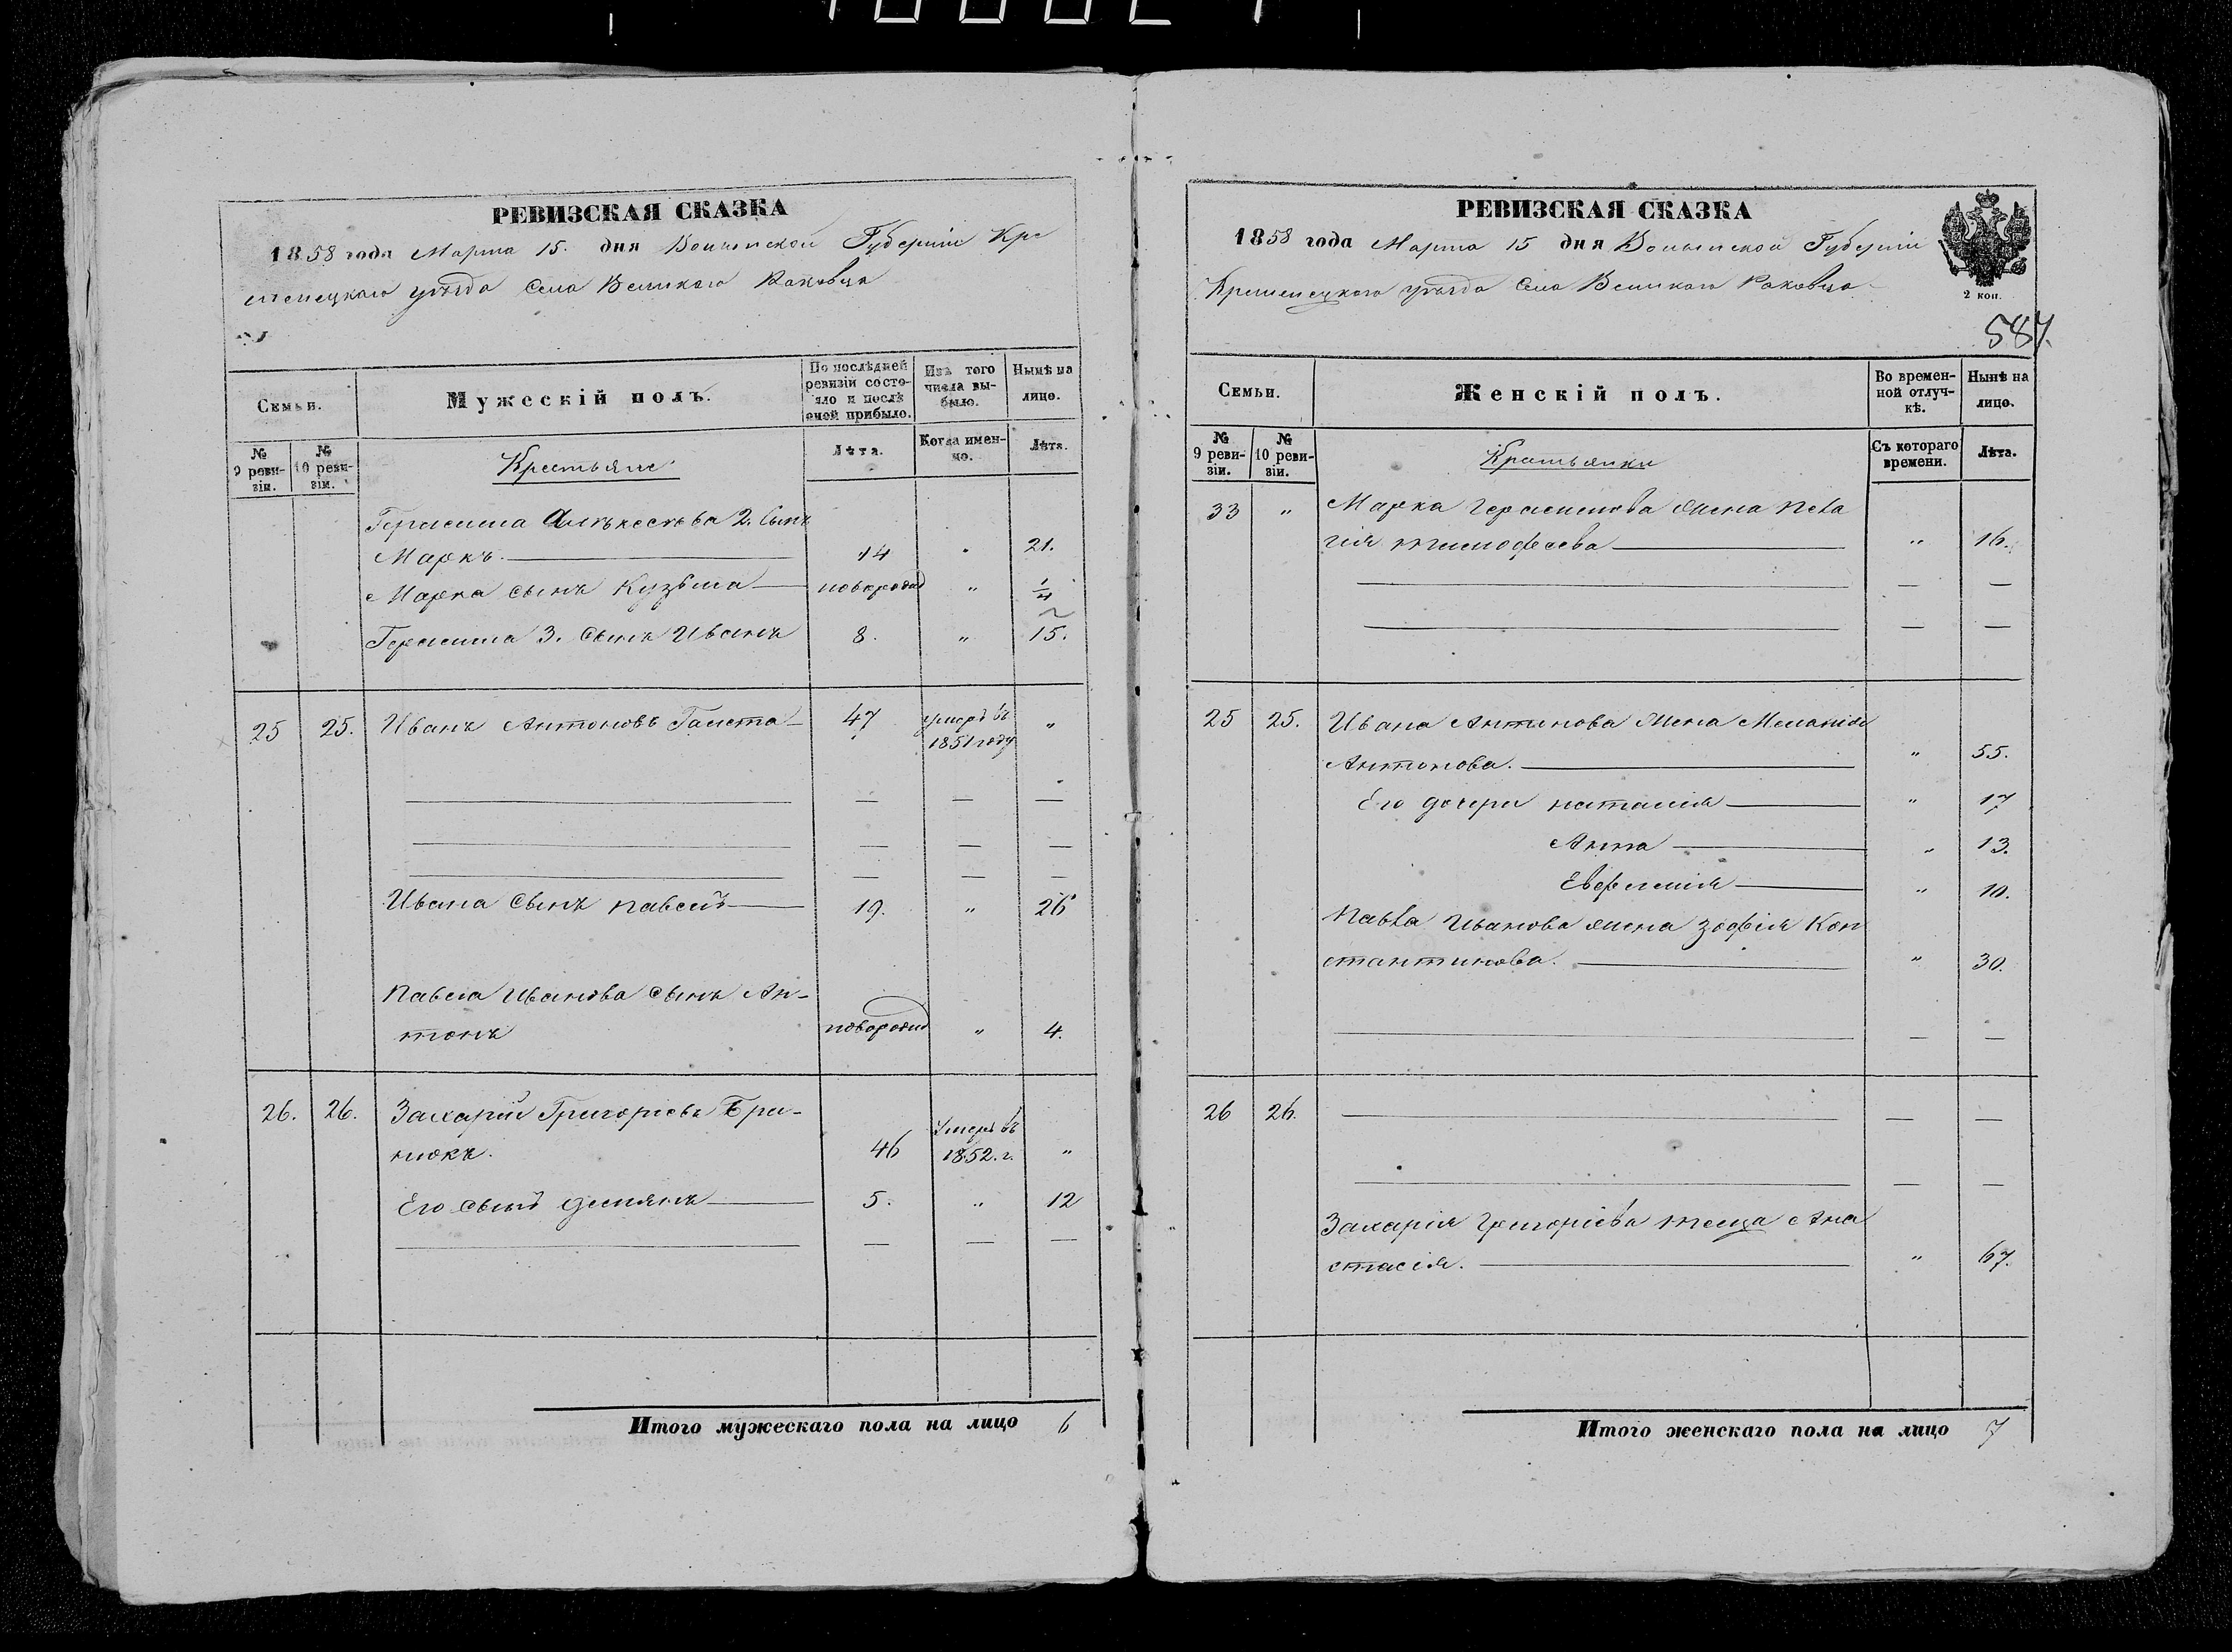 РЕВИЗСКАЯ СКАЗКА
1858 года Марта 15. дня Волынской Губерніи Кре
менецкаго уѣзда Села Великаго Раковца
Семьи.
Мужескій полъ.
По послѣдней ревизіи состояло и послѣ оной прибыло.
Изъ того числа выбыло.
Нынѣ на лицо.
№ 9 ревизіи.
№ 10 ревизіи.
Крестьяне
Лѣта.
Когда именно.
Лѣта.
Герасима 2. Сынъ
Маркъ. 14 " 21.
Марка сынъ Кузьма новорожд " 1/4
Герасима 3. Сынъ Иванъ 8. " 15.
25 25. Иванъ Антоновъ 47 умеръ въ 1851 году "
Ивана Сынъ Павелъ 19. " 26
Павла Иванова Сынъ Ан-
тонъ новорожд " 4.
26. 26. Захарій Григорьевъ Бри-
нюкъ. 46 Умеръ въ 1852. г. "
Его сынъ Демянъ 5. " 12
Итого мужескаго пола на лицо 6
РЕВИЗСКАЯ СКАЗКА
1858 года Марта 15 дня Волынской Губерніи
Кременецкого уѣзда Села Великаго Раковца
2 коп.
587.
Семьи.
Женскій полъ.
Во временной отлучкѣ.
Нынѣ на лицо.
№ 9 ревизіи.
№ 10 ревизіи.
Крестьянки
Съ котораго времени.
Лѣта.
33 " Марка Герасимова жена Пела
гія Тимофеева " 16.
25 25. Ивана Антонова Жена Меланія
Антонова. " 55.
Его дочери Наталія " 17
Анна " 13.
Евфимія " 10.
Павла Иванова жена Зофія Кон
стантинова. " 30.
26 26.
Захарія Григоріева теща Ана
стасія. " 67.
Итого женскаго пола на лицо 7